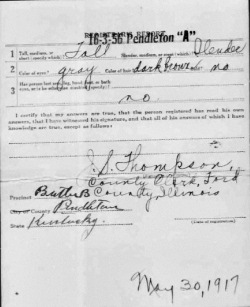 REGISTRAR'S REPORT
16-3-56 Pendleton "A"
1 Tall, medium, or short (specify which)? Tall Slender, medium, or stout (which)? Slender
2 Color of eyes? gray Color of hair? Dark brown Bald? no
3 Has person lost arm, leg, hand, foot, or both eyes, or is he otherwise disabled (specify)?
no
I certify that my answers are true, that the person registered has read his own answers, that I have witnessed his signature, and that all of his answers of which I have knowledge are true, except as follows:
J. S. Thompson,
County Clerk, Ford
Precinct Butler B County, Illinois
City or County Pendleton
State Kentucky
(Date of registration)
May 30, 1917